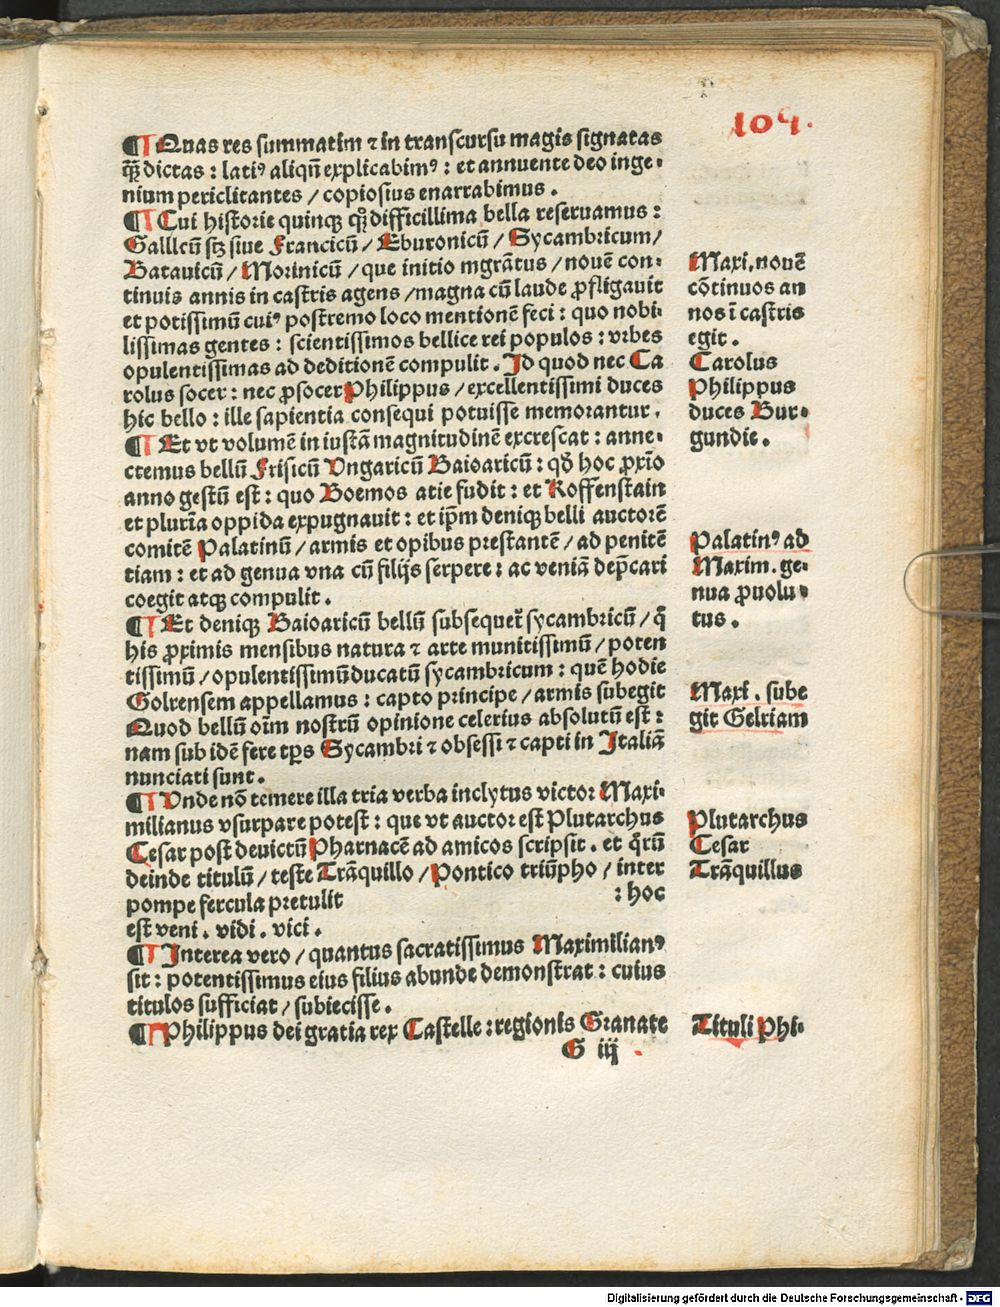 109.
¶ Quas res summatim ⁊ in transcursu magis signatas
q̄ꝫ dictas : latiꝰ aliqn̄ explicabimꝰ : et annuente deo inge⸗
nium periclitantes / copiosius enarrabimus .
¶ Cui historie quinqꝫ q̄ꝫ difficillima bella reseruamus :
Galllcū scꝫ siue Francicū / Eburonicū / Sycambricum /
Batauicū / Morinicū / que initio mgrātus / nouē con⸗
tinuis annis in castris agens / magna cū laude ꝓfligauit
et potissimū cuiꝰ postremo loco mentionē feci : quo nobi⸗
lissimas gentes : scientissimos bellice rei populos : vrbes
opulentissimas ad deditionē compulit . Id quod nec Ca
rolus socer : nec ꝓsocer Philippus / excellentissimi duces
hic bello : ille sapientia consequi potuisse memorantur .
¶ Et vt volumē in iustā magnitudinē excrescat : anne⸗
ctemus bellū Frisicū Vngaricū Baioaricū : qđ hoc ꝓxīo
anno gestū est : quo Boemos atie fudit : et Koffenstain
et plurīa oppida expugnauit : et ip̄m deniqꝫ belli auctorē
comitē Palatinū / armis et opibus prestantē / ad penitē
tiam : et ad genua vna cū filijs serpere : ac veniā dep̄cari
coegit atqꝫ compulit .
¶ Et deniqꝫ Baioaricū bellū subsequet᷑ sycambricū / q̄
his ꝓximis mensibus natura ⁊ arte munitissimū / poten
tissimū / opulentissimū ducatū sycambricum : quē hodie
Golrensem appellamus : capto principe / armis subegit
Quod bellū oīm nostrū opinione celerius absolutū est :
nam sub idē fere tꝑs Sycambri ⁊ obsessi ⁊ capti in Italiā
nunciati sunt .
¶ Vnde nō temere illa tria verba inclytus victor Maxi⸗
milianus vsurpare potest : que vt auctor est Plutarchus
Cesar post deuictū Pharnacē ad amicos scripsit . et q̄rū
deinde titulū / teste Trāquillo / Pontico triūpho / inter
pompe fercula pretulit : hoc
est veni . vidi . vici .
¶ Interea vero / quantus sacratissimus Maximilianꝰ
sit : potentissimus eius filius abunde demonstrat : cuius
titulos sufficiat / subiecisse .
¶ Philippus dei gratia rex Castelle : regionis Granate
G iij
Maxi. nouē
cōtinuos an
nos ī castris
egit .
Carolus
Philippus
duces Bur⸗
gundie .
Palatinꝰ ad
Maxim. ge⸗
nua ꝓuolu⸗
tus .
Maxi . sube
git Gelriam
Plutarchus
Cesar
Trāquillus
Tituli Phi⸗
Digitalisierung gefördert durch die Deutsche Forschungsgemeinschaft - DFG